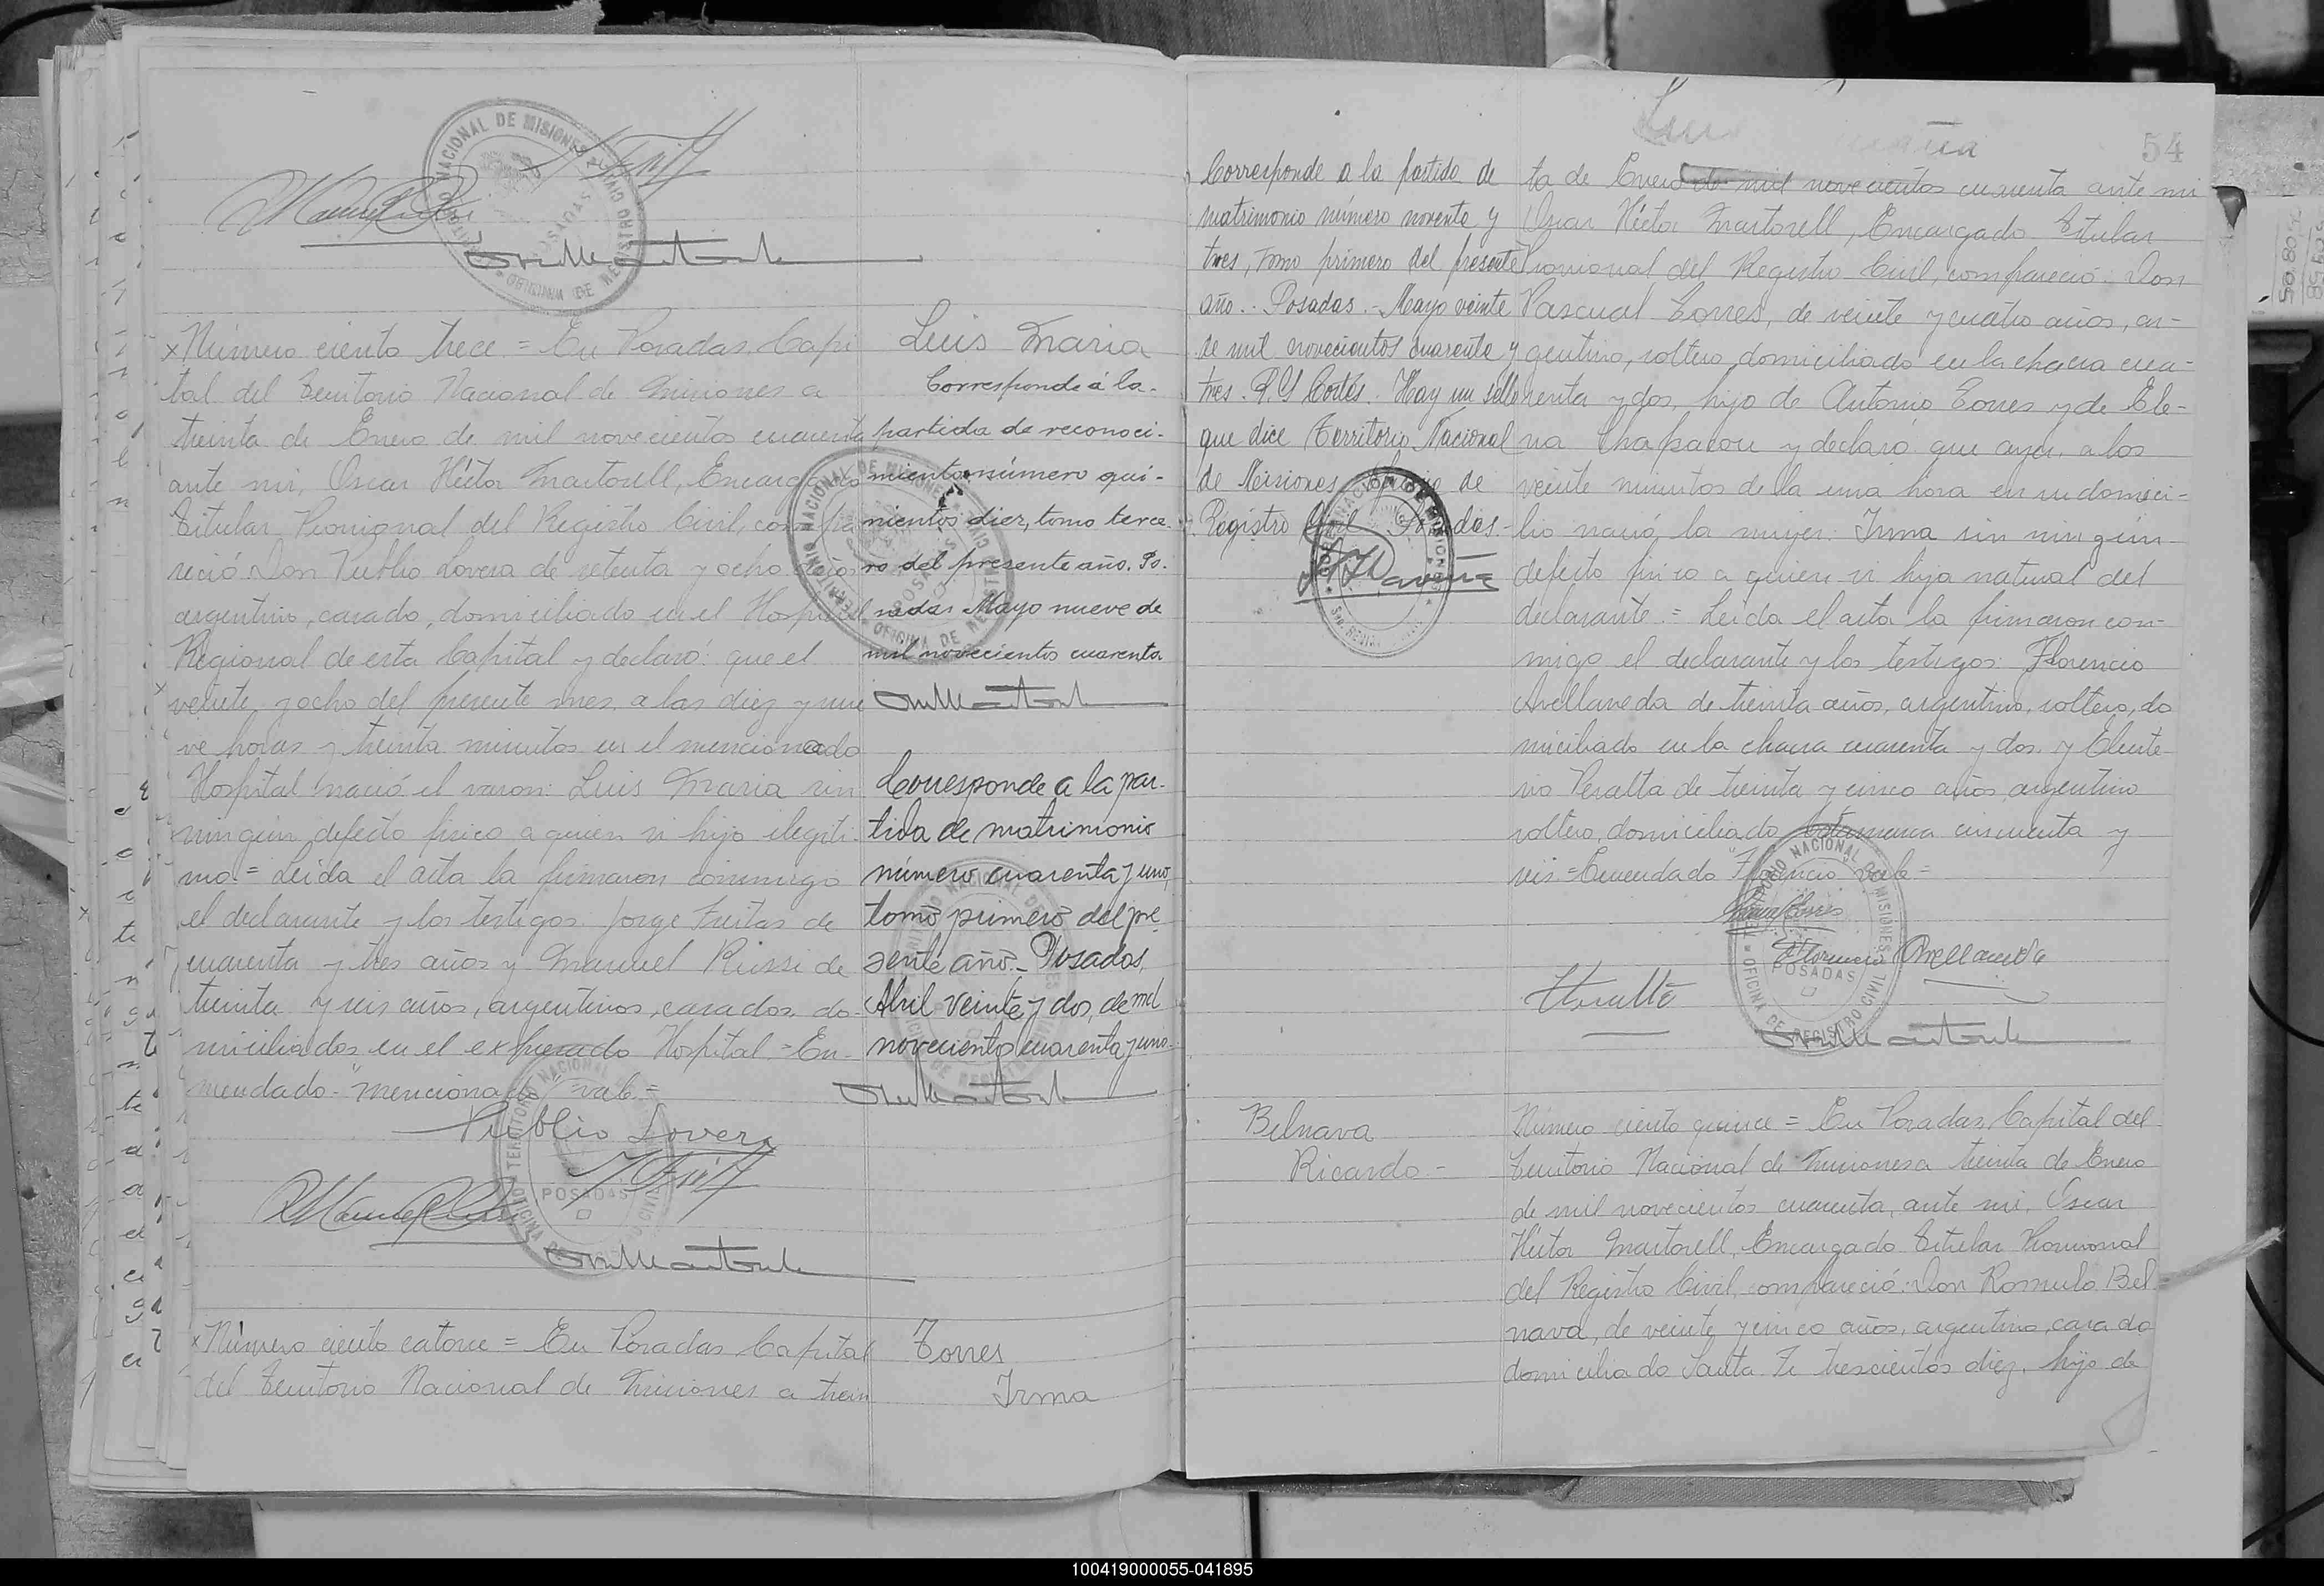 TERRITORIO NACIONAL DE MISIONES
POSADAS
OFICINA DE REGISTRO CIVIL
Número ciento trece = En Posadas, Capi
tal del Territorio Nacional de Misiones a
treinta de Enero de mil novecientos cuarenta
ante mi, Oscar Héctor Martorell, Encargado
Titular Provisional del Registro Civil, compa
reció Don Publio Lovera de setenta y ocho años
argentino, casado, domiciliado en el Hospital
Regional de esta Capital y declaró: que el
veinte y ocho del presente mes, a las diez y nue
ve horas y treinta minutos en el mencionado
Hospital nació el varon: Luis Maria sin
ningún defecto fisico a quien vi hijo ilegiti-
mo.= Leida el acta la firmaron conmigo
el declarante y los testigos: Jorge Freitas de
cuarenta y tres años y Manuel Russi de
treinta y seis años, argentinos, casados, do-
miciliados en el expresado Hospital.= En-
mendado "mencionado" vale =
Publio Lovera
Número ciento catorce = En Posadas Capital
del Territorio Nacional de Misiones a trein
Luis Maria
Corresponde á la
partida de reconoci-
miento número qui-
nientos diez, tomo terce-
ro del presente año. Po-
sadas Mayo nueve de
mil novecientos cuarenta
Corresponde a la par-
tida de matrimonio
número cuarenta y uno,
tomo primero del pre
sente año.- Posadas,
Abril veinte y dos, de mil
novecientos cuarenta y uno.-
Torres
Irma
54
Corresponde a la partida de
matrimonio número noventa y
tres, Tomo primero del presente
año.- Posadas.- Mayo veinte
de mil novecientos cuarenta y
tres. R. Y Cortés. Hay un sello
que dice Territorio Nacional
de Misiones Oficina de
Registro Civil Posadas.-
ta de Enero de mil novecientos cuarenta ante mi
Oscar Héctor Martorell, Encargado Titular
Provisional del Registro Civil, compareció: Don
Pascual Torres, de veinte y cuatro años, ar-
gentino, soltero, domiciliado en la chacra cua-
renta y dos, hijo de Antonio Torres y de Ele-
na Chaparou y declaró que ayer, a los
veinte minutos de la una hora en su domici-
lio nació, la mujer: Irma sin ningún
defecto fisico a quien vi hija natural del
declarante.= Leida el acta la firmaron con-
migo el declarante y los testigos: Florencio
Avellaneda de treinta años, argentino, soltero, do
miciliado en la chacra cuarenta y dos y Eleute-
rio Peralta de treinta y cinco años argentino
soltero, domiciliado Catamarca cincuenta y
seis = Enmendado "Florencio" vale =
Florencio Avellaneda
TERRITORIO NACIONAL DE MISIONES
POSADAS
OFICINA DE REGISTRO CIVIL
Belnava
Ricardo -
Número ciento quince = En Posadas, Capital del
Territorio Nacional de Misiones a treinta de Enero
de mil novecientos cuarenta, ante mi, Oscar
Héctor Martorell, Encargado Titular Provisional
del Registro Civil, compareció: Don Romulo Bel
nava, de veinte y cinco años, argentino, casado
domiciliado Santa Fe trescientos diez, hijo de
100419000055-041895